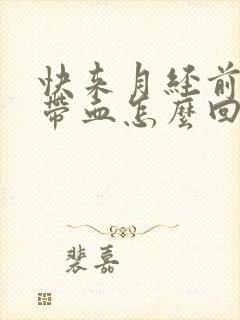 快来月经前
带血怎麼回
裴嘉